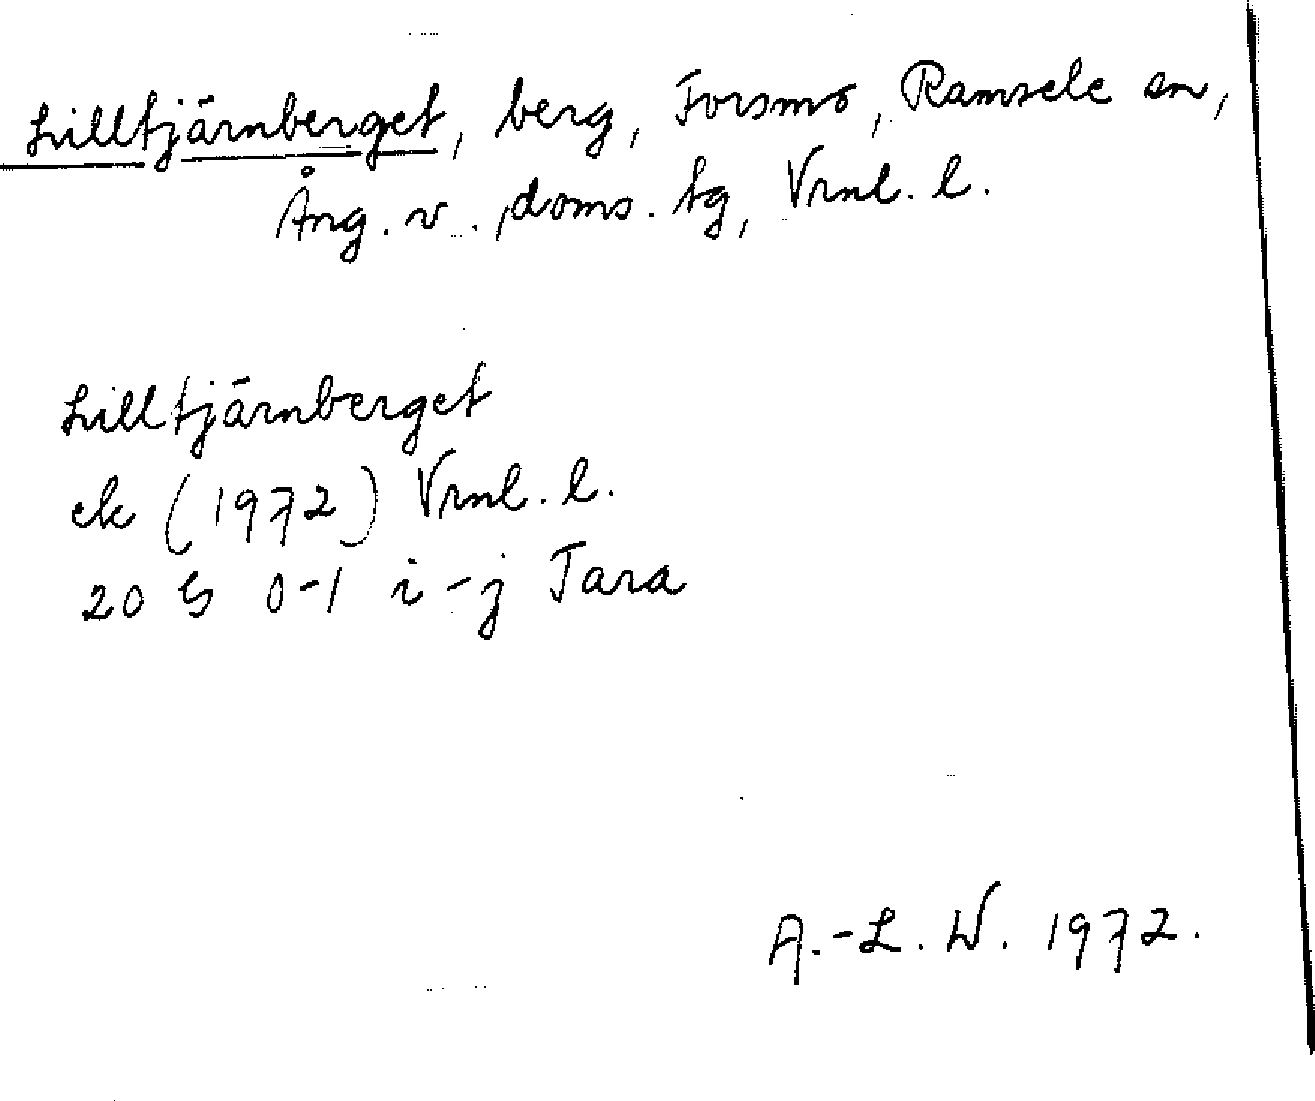 Lilltjärnberget, berg, Forsmo, Ramsele sn,
Ång. v. doms. tg, Vrnl. l.
Lilltjärnberget
ek (1972) Vrnl. l.
20 G 0-1 i-j Tara
A.-L. W. 1972.